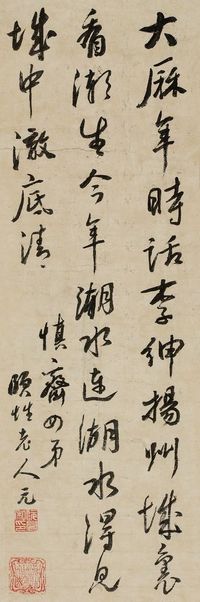 大厤年時話李紳揚州城裏
看潮生今年潮水連湖水得見
城中澈底清
慎齋四弟
頤性老人元